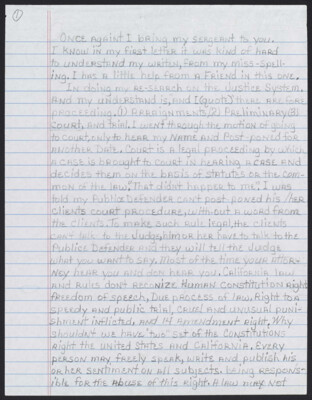 ①
Once againt I bring my sergeant to you.
I know in my first letter it was kind of hard
to understand my writen, from my miss-spell-
ing. I has a little help from a friend in this one.
In doing my re-search on the Justice System.
and my understand is, and [(quot)] there are fore
proceeding. (1) Araraignments (2) Preliminary (3)
Court, and trial. I went through the motion of going
to court, only to hear my name and Post-poned for
another date. Court is a legal proceeding by which
a case is brought to court in hearing a case and
decides them on the basis of statutes or the com-
mon of the law. "That didn't happer to me." I was
told my Public Defender can't post poned his/her
clients court procedure, with-out a word from
the clients. To make such rule legal, the clients
can't talk to the Judge, him or her have to talk to the
Publice Defender and they will tell the Judge
what you want to say. Most of the time your attor-
ney hear you and don hear you. California law
and rules don't reconize Human Constitution right
freedom of speech, Due process of law, right to a
speedy and public trial, Cruel and unusual puni-
shment inflicted, and 14 amendment right, Why
shouldn't we have "two" set of the constitutions
right the United States and California. Every
person may freely speak, write and publish his
or her sentiment on all subjects. being respons-
ible for the abuse of this right. A law may not